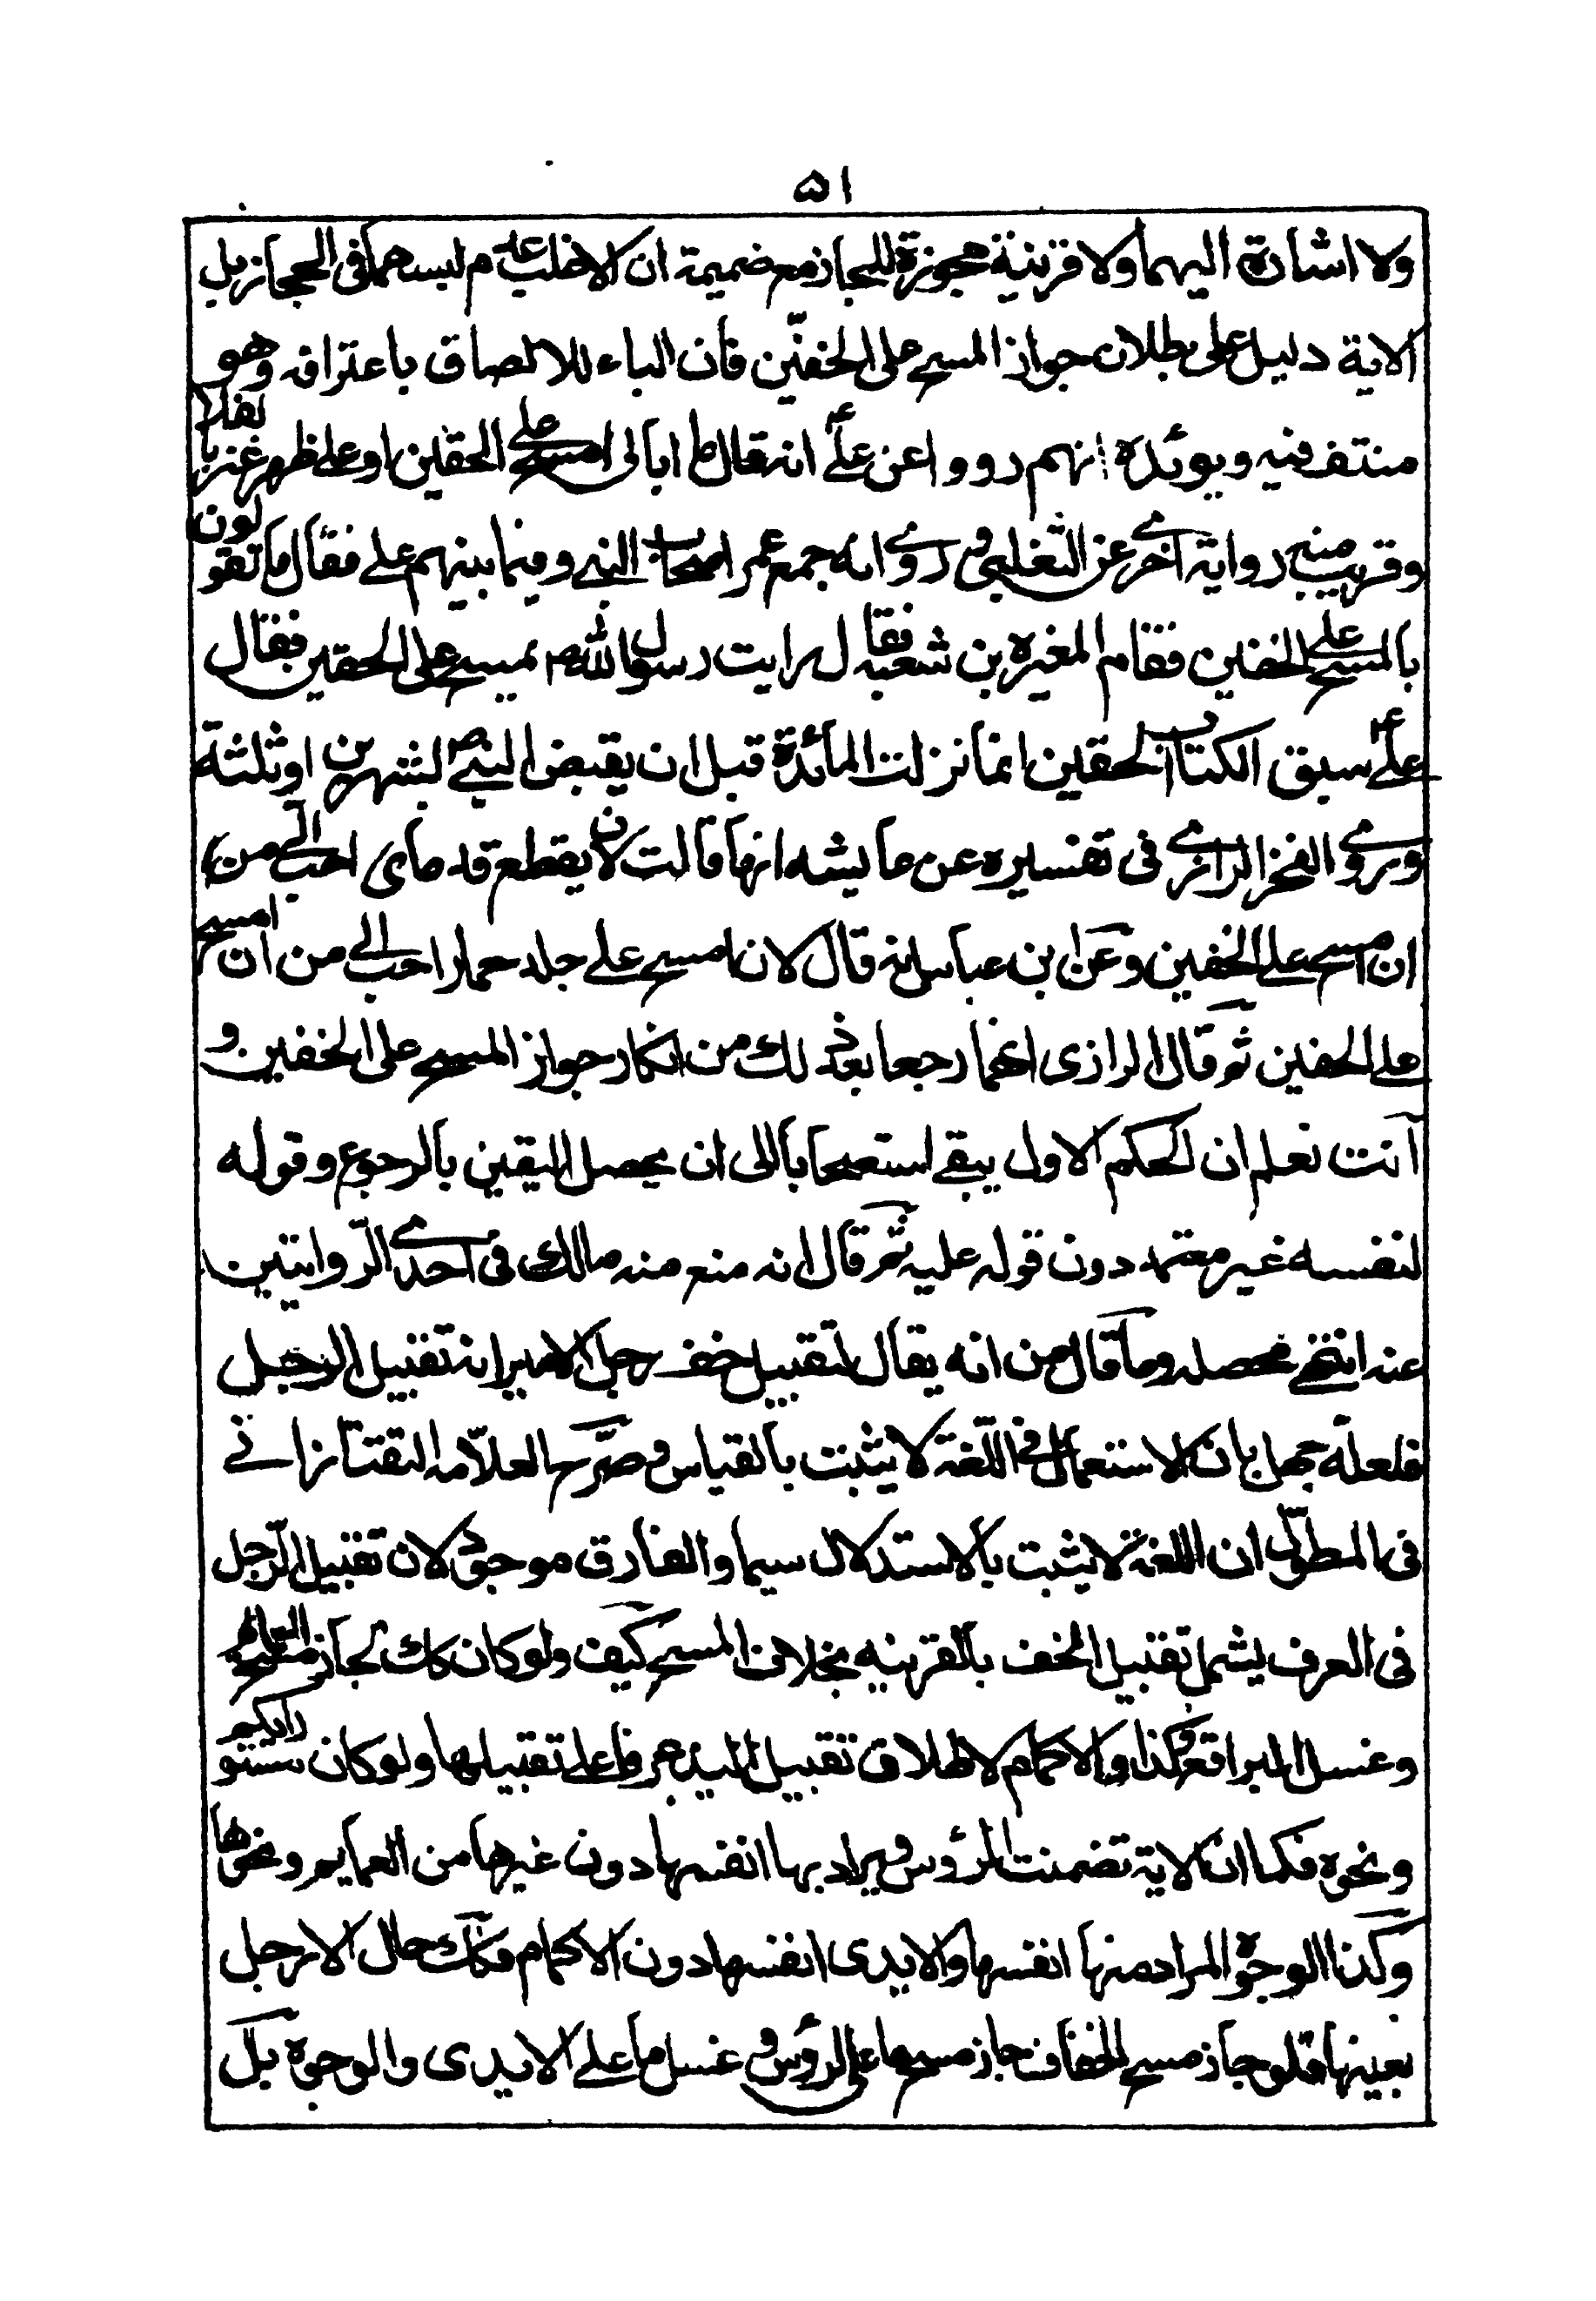 ۵۱
ولا اشارة اليهما ولا قرينة مجوزة للمجاز مع ضميمة ان الاغلب عدم لبسهما فى الحجاز بل
الاية دليل على بطلان جواز المسح على الخفّين فان الباء للالصاق باعترافه وهو
منتف فيه ويوئده انهم رووا عن علىّ انه قال ما ابالى امسح على الخفين او على ظهر عنز بالفلا
وقريب منه رواية اخرى عن الثعلبى و روى انه جمع عمر اصحاب النبى وفيما بينهم على فقال ما تقولون
بالمسح على الخفين فقام المغيرة بن شعبه فقال رايت رسول الله ص يمسح على الخفين فقال
علىّ سبق الكتاب الخفين انما نزلت المائدة قبل ان يقبض النبىّ بشهرين او ثلثة
وروى الفخر الرازى فى تفسيره عن عايشه انها قالت لان يقطع قدماى احب الى من
ان امسح على الخفين وعن ابن عباس انه قال لان امسح على جلد حمار احب الى من ان امسح
على الخفين ثم قال الرازى انهما رجعا بعد ذلك من انكار جواز المسح على الخفين و
انت تعلم ان الحكم الاول يبقى استصحابا الى ان يحصل اليقين بالرجوع وقوله
لنفسه غير معتمد دون قوله عليه ثم قال انه منع منه مالك فى احدى الرّوايتين
عنه انتهى محصله وما قال من انه يقال لتقبيل خف رجل الامير انه تقبيل الرجل
فلعلّه جهل بان الاستعمال فى اللّغة لا يثبت بالقياس و صرّح به العلاّمه التفتازانے
فى المطوّل ان اللغة لا يثبت بالاستدلال سيما والفارق موجود لان تقبيل الرّجل
فى العرف يشمل تقبيل الخف بالقرينه بخلاف المسح كيف ولو كان كك لجاز مسح العمائم
وغسل البراقع وكذا الاكمام لاطلاق تقبيل اليد عرفا على تقبيلها ولو كان
ونحوه فكما ان الاية تضمنت الرؤس و يراد بها انفسها دون غيرها من العمايم ونحوها
وكذا الوجوه المراد منها انفسها والايدى انفسها دون الاكمام فكك حال الارجل
بعينها فلو جاز مسح الخفاف جاز مسح ما على الرؤس و غسل ما على الايدى والوجوه بل